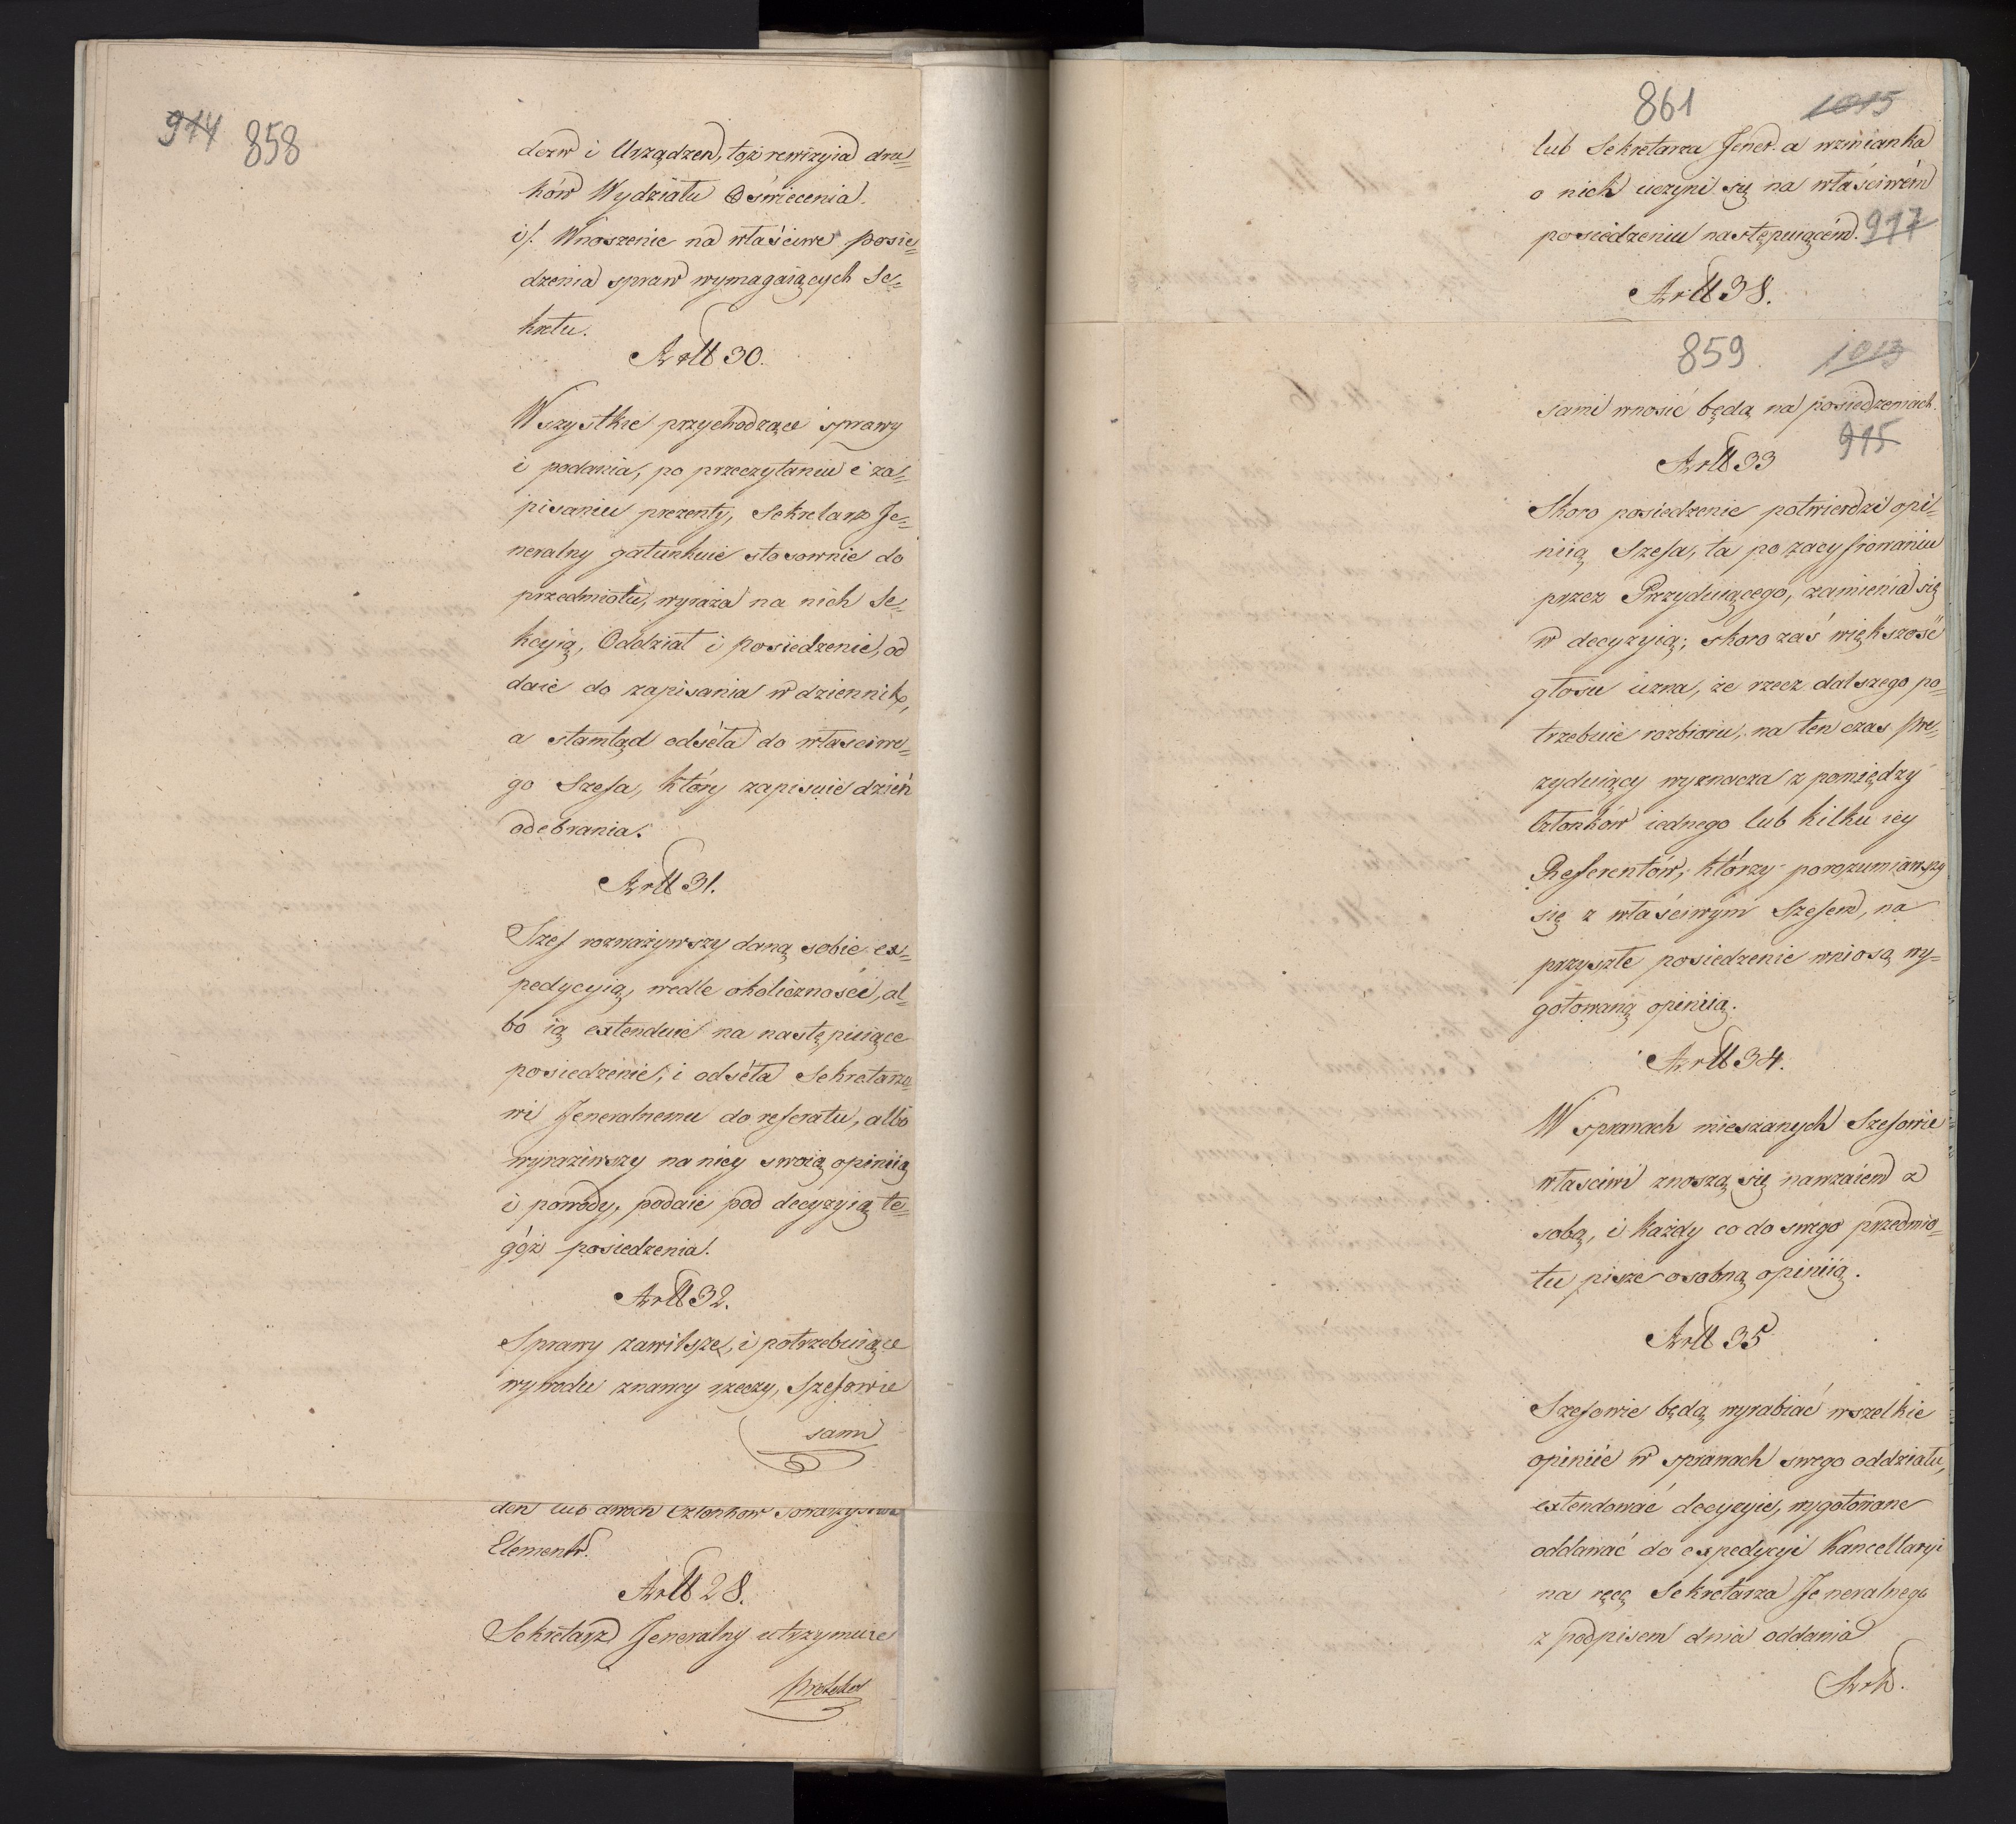 914 858
dezw i Urządzeń, toż rewizyia dru=
ków Wydziału Oświecenia.
i/. Wnoszenie na właściwe posie=
dzenia spraw wymagaiących Se=
kretu.
Artt 30.
Wszystkie przychodzące sprawy
i podania, po przeczytaniu i za=
pisaniu prezenty, Sekretarz Je=
neralny gatunkuie stosownie do
przedmiotu, wyraża na nich Se=
kcyią, Oddział i posiedzenie, od
daie do zapisania w dziennik,
a stamtąd odséła do właściwe=
go Szefa, który zapisuie dzień
odebrania.
Artt 31.
Szef rozważywszy daną sobie ex=
pedycyią, wedle okoliczności, al=
bo ią extenduie na następuiące
posiedzenie, i odséła Sekretarzo
wi Jeneralnemu do referatu, albo
wyraziwszy na niey swoią opiniią
i powody, podaie pod decyzyią te=
góż posiedzenia.
Artt 32.
Sprawy zawilsze, i potrzebuiące
wywodu znawcy rzeczy, Szefowie
sami
den lub dwóch Członków Towarzystwa
Elementr.
Artt 28.
Sekretarz Jeneralny utrzymuie
protokół
861 1015
lub Sekretarza Jener. a wzmianka
o nich uczyni się na właściwém
posiedzeniu następuiącém. 917
Artt 38.
859 1013
sami wnosić będą na posiedzeniach.
915
Artt 33
Skoro posiedzenie potwierdzi opi=
niią Szefa, ta po zacyfrowaniu
przez Prezyduiącego, zamienia się
w decyzyią; skoro zaś większość
głosu uzna, że rzecz dalszego po=
trzebuie rozbioru, na ten czas Pre=
zyduiący wyznacza z pomiędzy
Członków iednego lub kilku iey
Referentów, którzy porozumiawszy
się z właściwym Szefem, na
przyszłe posiedzenie wniosą wy=
gotowaną opiniią.
Artt 34.
W sprawach mieszanych Szefowie
właściwi znoszą się nawzaiem z
sobą, i każdy co do swego przedmio=
tu pisze osobną opiniią.
Artt 35
Szefowie będą wyrabiać wszelkie
opiniie w sprawach swego oddziału,
extendować decyzyie, wygotowane
oddawać do expedycyi Kancellaryi
na ręcę Sekretarza Jeneralnego
z podpisem dnia oddania
Art.